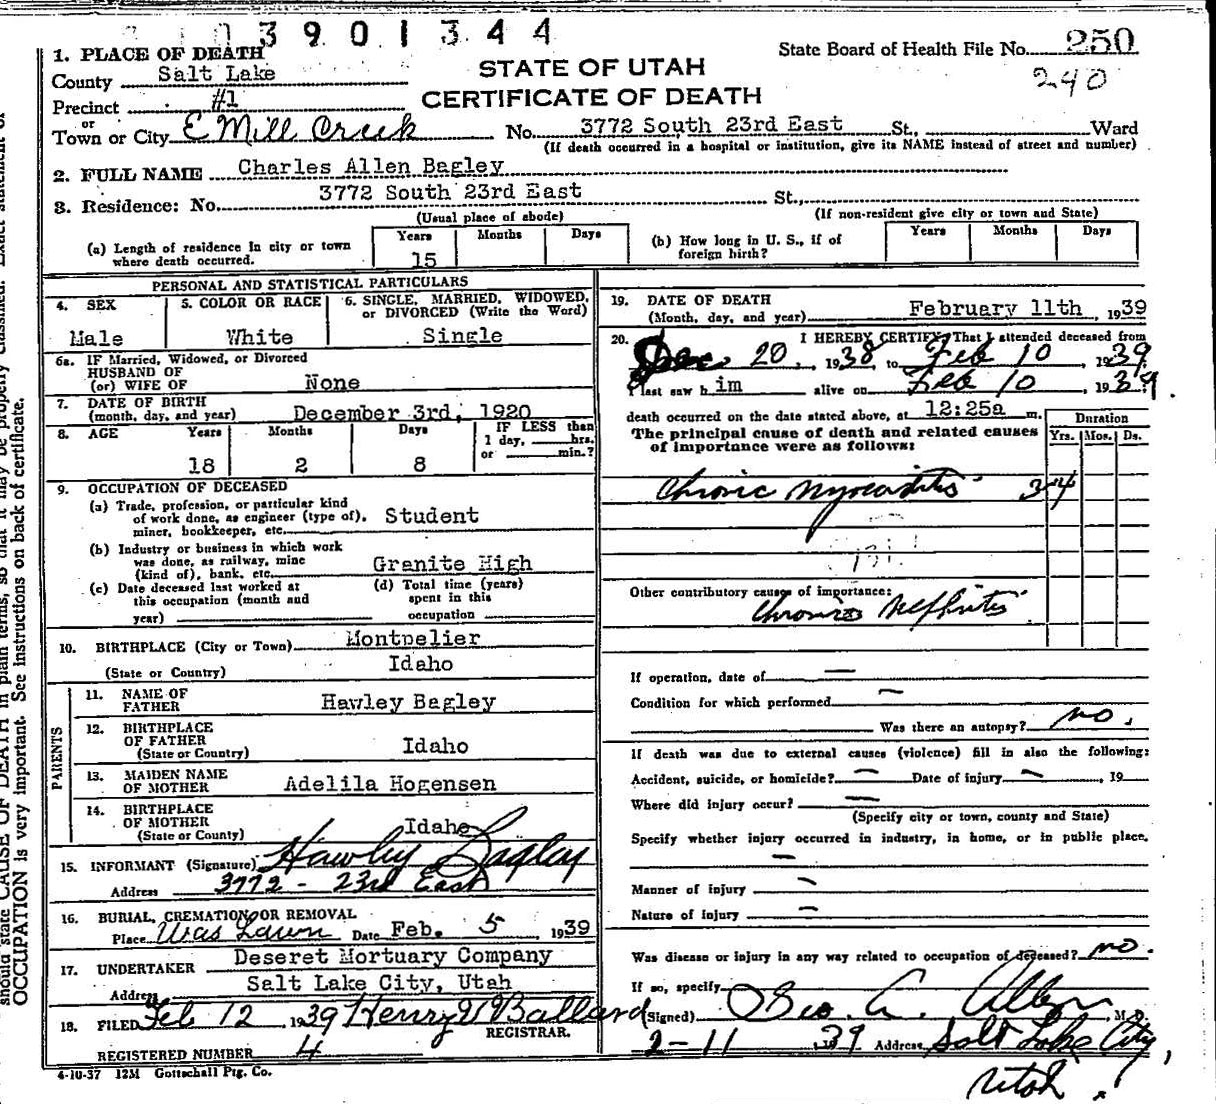 3901344
1. PLACE OF DEATH
County Salt Lake
Precinct #1
or
Town or City E Mill Creek No. 3772 South 23rd East St., Ward
(If death occurred in a hospital or institution, give its NAME instead of street and number)
State Board of Health File No. 250
240
STATE OF UTAH
CERTIFICATE OF DEATH
2. FULL NAME Charles Allen Bagley
3. Residence: No. 3772 South 23rd East St.,
(Usual place of abode) (If non-resident give city or town and State)
(a) Length of residence in city or town where death occurred. Years 15 Months Days
(b) How long in U. S., if of foreign birth? Years Months Days
PERSONAL AND STATISTICAL PARTICULARS
4. SEX Male
5. COLOR OR RACE White
6. SINGLE, MARRIED, WIDOWED, or DIVORCED (Write the Word) Single
6a. IF Married, Widowed, or Divorced
HUSBAND OF
(or) WIFE OF None
7. DATE OF BIRTH
(month, day, and year) December 3rd, 1920
8. AGE Years 18 Months 2 Days 8
IF LESS than
1 day, hrs.
or min.?
9. OCCUPATION OF DECEASED
(a) Trade, profession, or particular kind
of work done, as engineer (type of), Student
miner, bookkeeper, etc.
(b) Industry or business in which work
was done, as railway, mine
(kind of), bank, etc. Granite High
(c) Date deceased last worked at
this occupation (month and
year)
(d) Total time (years)
spent in this
occupation
10. BIRTHPLACE (City or Town) Montpelier
(State or Country) Idaho
PARENTS
11. NAME OF
FATHER Hawley Bagley
12. BIRTHPLACE
OF FATHER
(State or Country) Idaho
13. MAIDEN NAME
OF MOTHER Adelila Hogensen
14. BIRTHPLACE
OF MOTHER
(State or Country) Idaho
15. INFORMANT (Signature) Hawley Bagley
Address 3772 - 23rd East
16. BURIAL, CREMATION OR REMOVAL
Place Was Lawn Date Feb. 5 1939
17. UNDERTAKER Deseret Mortuary Company
Address Salt Lake City, Utah
18. FILED Feb 12 1939 Henry W Ballard
REGISTRAR.
REGISTERED NUMBER 4
4-10-37 12M Gottschall Ptg. Co.
19. DATE OF DEATH
(Month, day, and year) February 11th, 1939
20. I HEREBY CERTIFY, That I attended deceased from
Dec 20, 1938, to Feb 10, 1939
I last saw h im alive on Feb 10, 1939.
death occurred on the date stated above, at 12:25a m.
The principal cause of death and related causes
of importance were as follows:
Duration
Yrs. Mos. Ds.
Chronic Myocarditis 3-4
131
Other contributory causes of importance:
Chronic Nephritis
If operation, date of —
Condition for which performed —
Was there an autopsy? no.
If death was due to external causes (violence) fill in also the following:
Accident, suicide, or homicide? — Date of injury —, 19
Where did injury occur? —
(Specify city or town, county and State)
Specify whether injury occurred in industry, in home, or in public place.
—
Manner of injury —
Nature of injury —
Was disease or injury in any way related to occupation of deceased? no.
If so, specify
(Signed) Geo. A. Allen M. D.
2-11 1939 Address Salt Lake City,
Utah.
should state CAUSE OF DEATH in plain terms, so that it may be properly classified. Exact statement of
OCCUPATION is very important. See instructions on back of certificate.